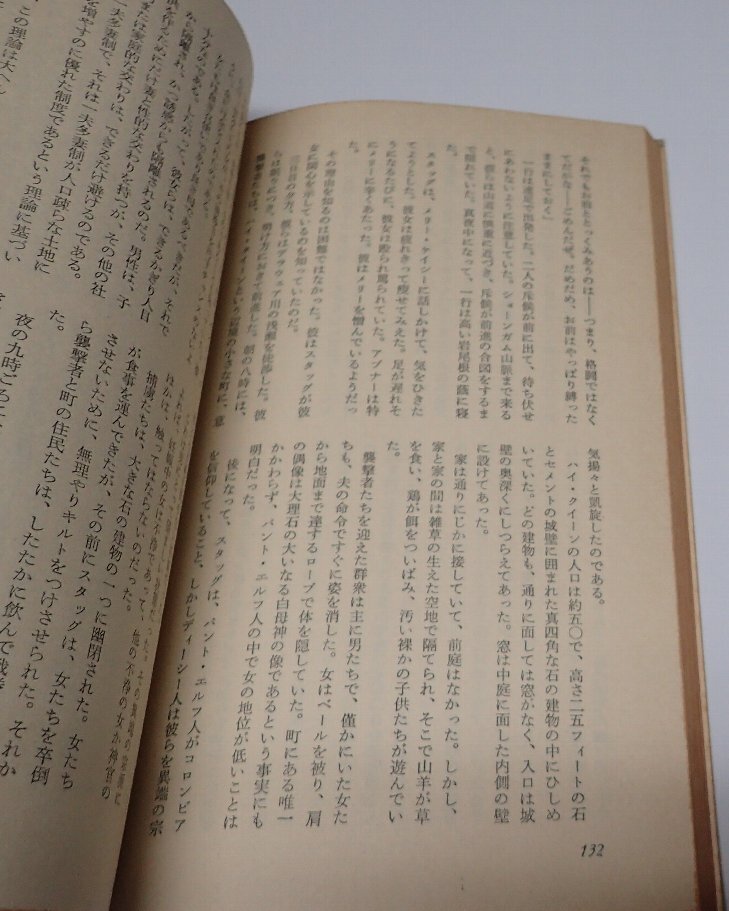 それでもお前ととっくみあうのは――つまり、格闘ではなく
てだがな――ごめんだぜ。だめだめ、お前はやっぱり縛った
ままにしておく」
一行は速足で出発した。二人の斥候が前に出て、待ち伏せ
にあわないように注意していた。ショーンガム山脈まで来る
と、彼らは山道に慎重に近づき、斥候が前進の合図をするま
で隠れていた。真夜中になって、一行は高い岩尾根の蔭に寝
た。
スタッグは、メリー・ケイシーに話しかけて、気をひきた
てようとした。彼女は疲れきって痩せてみえた。足が遅れそ
うになるたびに、彼女は殴られ罵られていた。アブナーは特
にメリーに辛くあたった。彼はメリーを憎んでいるようだっ
た。
その理由を知るのは困難ではなかった。彼はスタッグが彼
女に関心を示しているのを知っていたのだ。
三日目の夕方、彼らはデラウェア川の浅瀬を徒渉した。彼
らは眠りにつき、明け方におきて前進した。朝の八時には、
襲撃者たちは、ハイ・クイーンという辺境の小さな町に、意
気揚々と凱旋したのである。
ハイ・クイーンの人口は約五〇で、高さ二五フィートの石
とセメントの城壁に囲まれた真四角な石の建物の中にひしめ
いていた。どの建物も、通りに面しては窓がなく、入口は城
壁の奥深くにしつらえてあった。窓は中庭に面した内側の壁
に設けてあった。
家は通りにじかに接していて、前庭はなかった。しかし、
家と家の間は雑草の生えた空地で隔てられ、そこで山羊が草
を食い、鶏が餌をついばみ、汚い裸かの子供たちが遊んでい
た。
襲撃者たちを迎えた群衆は主に男たちで、僅かにいた女た
ちも、夫の命令ですぐに姿を消した。女はベールを被り、肩
から地面まで達するローブで体を隠していた。町にある唯一
の偶像は大理石の大いなる白母神の像であるという事実にも
かかわらず、パント・エルフ人の中で女の地位が低いことは
明白だった。
後になって、スタッグは、パント・エルフ人がコロンビア
を信仰していること、しかしディーシー人は彼らを異端の宗
132
したがって、彼女らは、できるかぎり人目
から隔離され、かつ誘惑からも隔離されるのだ。男性は、子
供を得るためにだけ妻と性的な交わりを持つが、その他の社
または家庭的な交わりは、できるだけ避けるのである。
一夫多妻制で、それは一夫多妻制が人口疎らな土地に
を増やすのに優れた制度であるという理論に基づい
この理論は大へん
触ってはならないのだった。
捕虜たちは、大きな石の建物の一つに幽閉された。女たち
が食事を運んできたが、その前にスタッグは、女たちを卒倒
させないために、無理やりキルトをつけさせられた。それか
ら襲撃者と町の住民たちは、したたかに飲んで
た。
夜の九時ごろに、